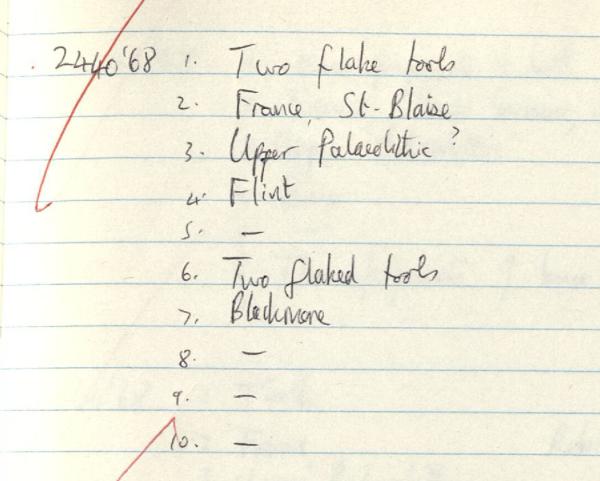 2440'68 1. Two flake tools
2. France, St-Blaise
3. Upper Palaeolithic?
4. Flint
5. —
6. Two flaked tools
7. Blackmore
8. —
9. —
10. —